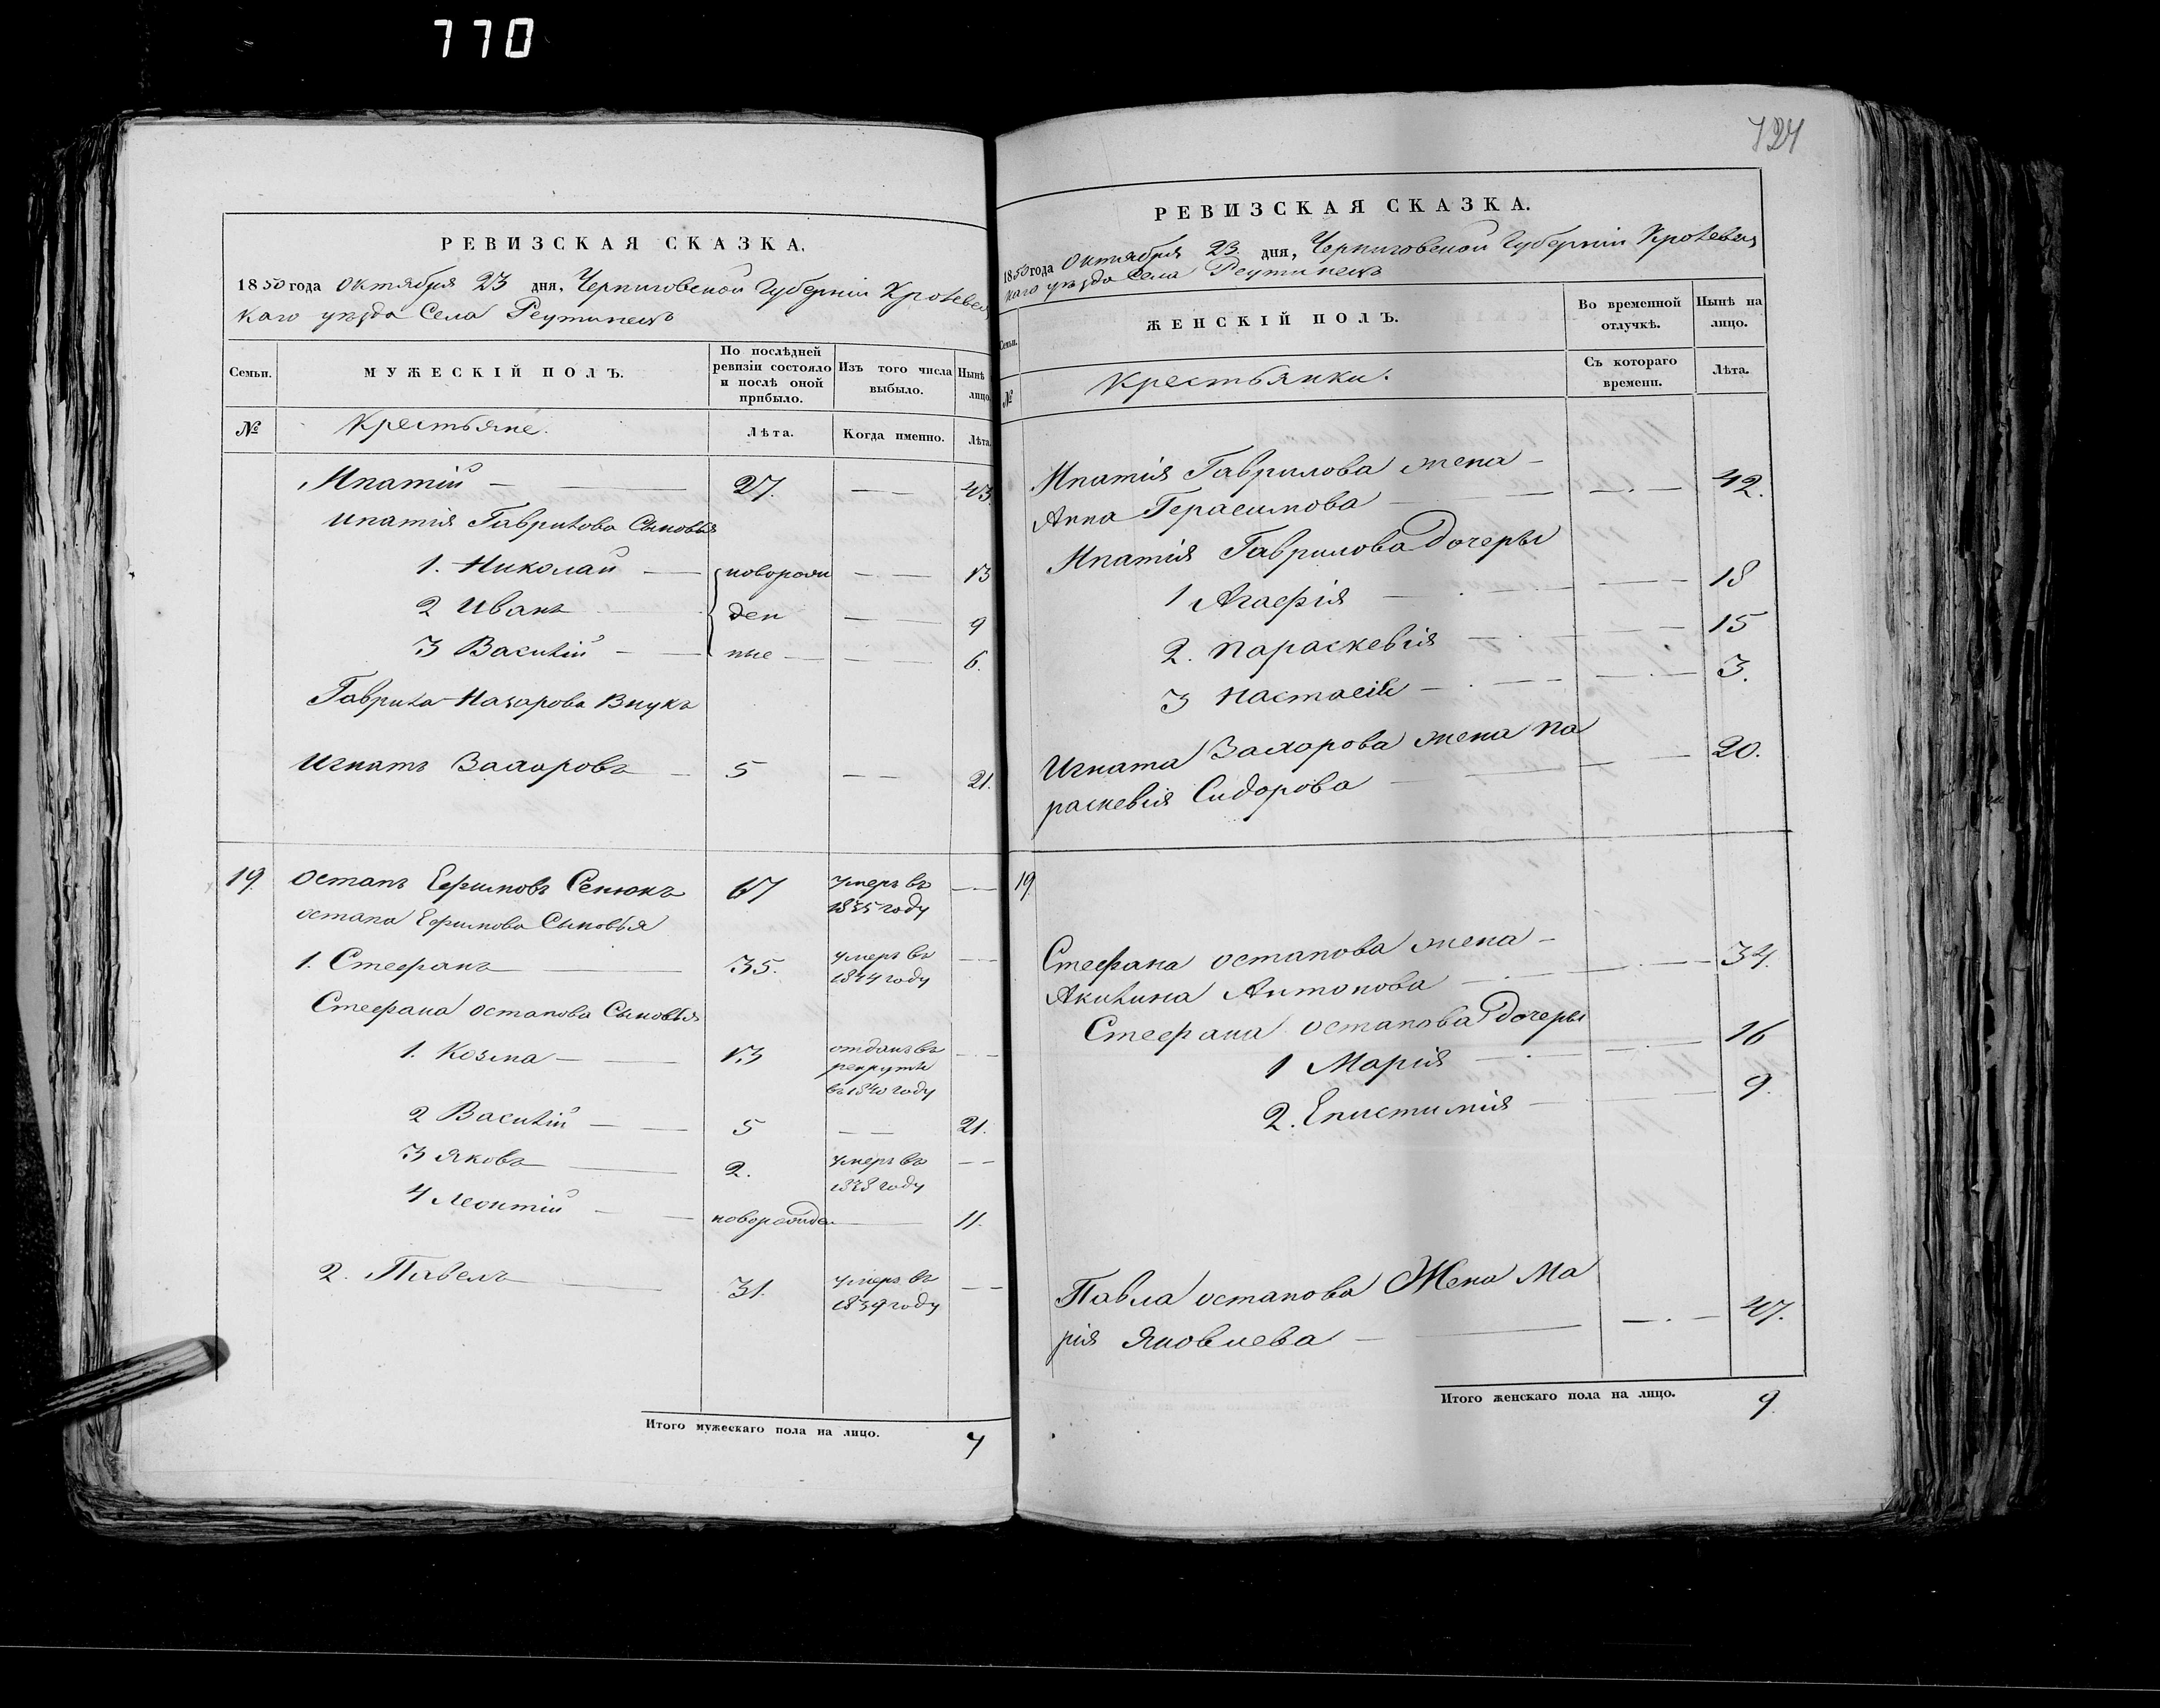 770
РЕВИЗСКАЯ СКАЗКА.
1850 года Октября 23 дня, Черниговской Губерніи Кролевец
каго уѣзда Села Реутинецъ
Семьи.
МУЖЕСКІЙ ПОЛЪ.
По послѣдней ревизіи состояло и послѣ оной прибыло.
Изъ того числа выбыло.
Нынѣ лицо
№
Крестьяне.
Лѣта.
Когда именно.
Лѣта
Ипатій — — 27. — — 43.
Ипатія Гаврилова Сыновья
1. Николай — новорож — — 13
2 Иванъ — ден — — 9
3 Василій — — ные — — 6.
Гаврила Назарова Внукъ
Игнатъ Захаровъ — 5 — — 21.
19. Остапъ Ефимовъ Сенюкъ 67 умеръ въ — —
1835 году
Остапа Ефимова Сыновья
1. Стефанъ — 35. умеръ въ — —
1844 году
Стефана Остапова Сыновья
1. Козма — — 13 отданъ въ — —
рекруты
въ 1840 году
2 Василій — — 5 — — 21.
3 Яковъ — 2. умеръ въ — —
1838 году
4 Леонтій — — новорожден — 11.
2. Павелъ — 31. умеръ въ — —
1839 году
Итого мужескаго пола на лицо. 7
727
РЕВИЗСКАЯ СКАЗКА.
1850 года Октября 23 дня, Черниговской Губерніи Кролевец
каго уѣзда Села Реутинецъ
Семьи.
ЖЕНСКІЙ ПОЛЪ.
Во временной отлучкѣ.
Нынѣ на лицо.
№
Крестьянки.
Съ котораго времени.
Лѣта.
Ипатія Гаврилова жена —
Анна Герасимова — — — . — 42.
Ипатія Гаврилова Дочеры
1 Агафія — . — — — 18
2. Параскевія — . — — — 15
3 Настасія — . — — . — 3.
Игната Захарова жена Па
раскевія Сидорова — — — — 20.
19.
Стефана Остапова жена —
Акилина Антонова — — — . — 34.
Стефана Остапова Дочеры
1 Марія — . — — . — 16
2. Епистимія — — — 9.
Павла Остапова Жена Ма
рія Яковлева — — — . — 47.
Итого женскаго пола на лицо. 9.